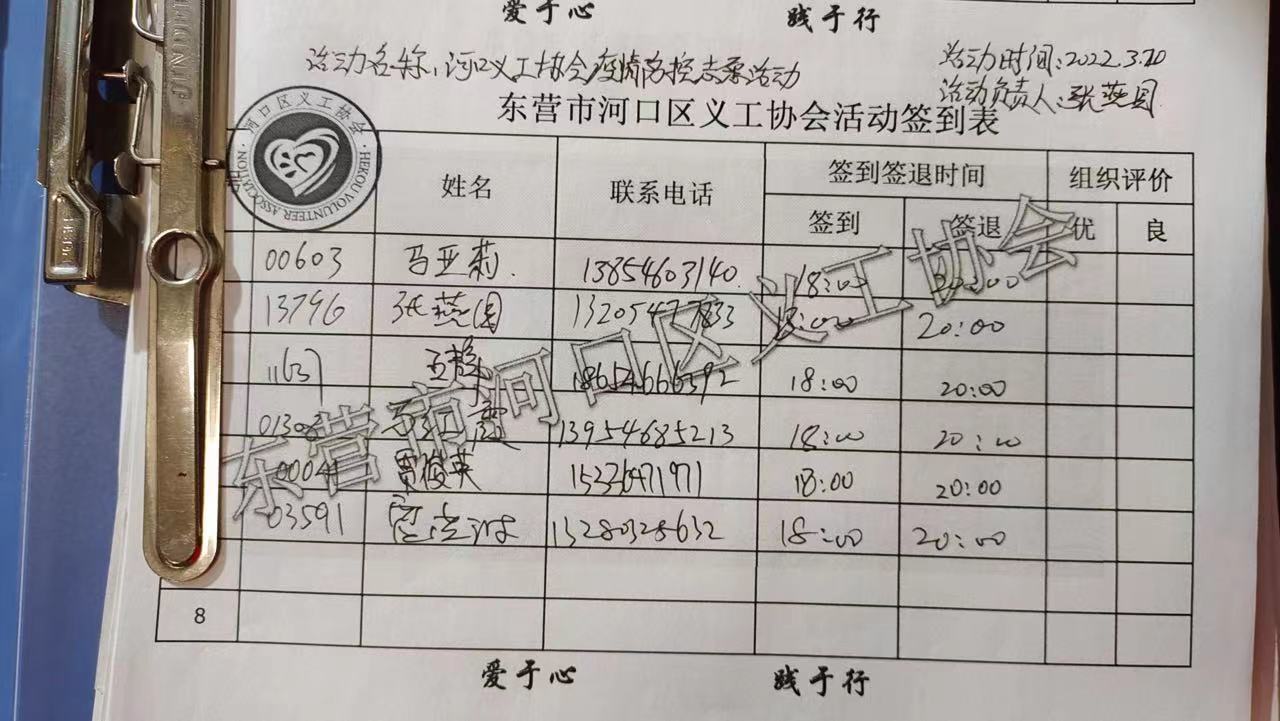 爱于心 践于行
活动名称:河口义工协会疫情防控志愿活动 活动时间:2022.3.20
活动负责人:张燕园
东营市河口区义工协会活动签到表
河口区义工协会
HEKOU VOLUNTEER ASSOCIATION
姓名 联系电话 签到签退时间 组织评价
签到 签退 优 良
00603 马亚莉 13854603140 18:00 20:00
13796 张燕园 13205477833 18:00 20:00
1163 18654666392 18:00 20:00
霞 13954685213 18:00 20:00
00041 贾俊英 18:00 20:00
03591 18:00 20:00
8
东营市河口区义工协会
爱于心 践于行